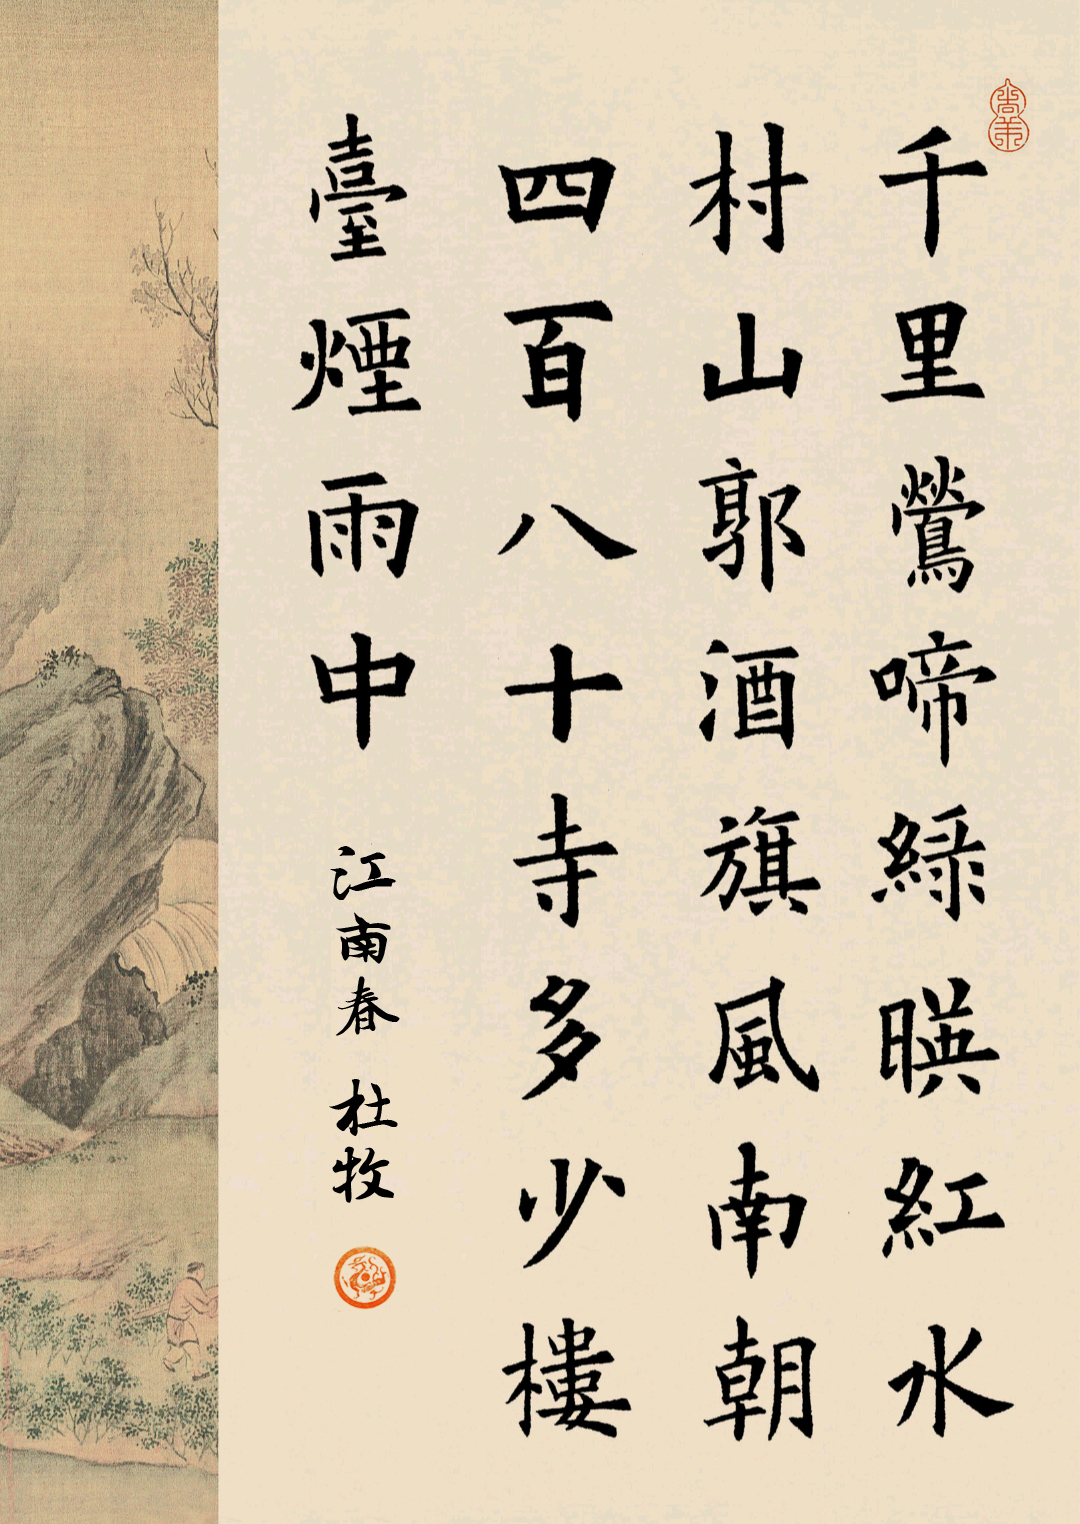 千里鶯啼綠暎紅水
村山郭酒旗風南朝
四百八十寺多少樓
臺煙雨中
江南春 杜牧